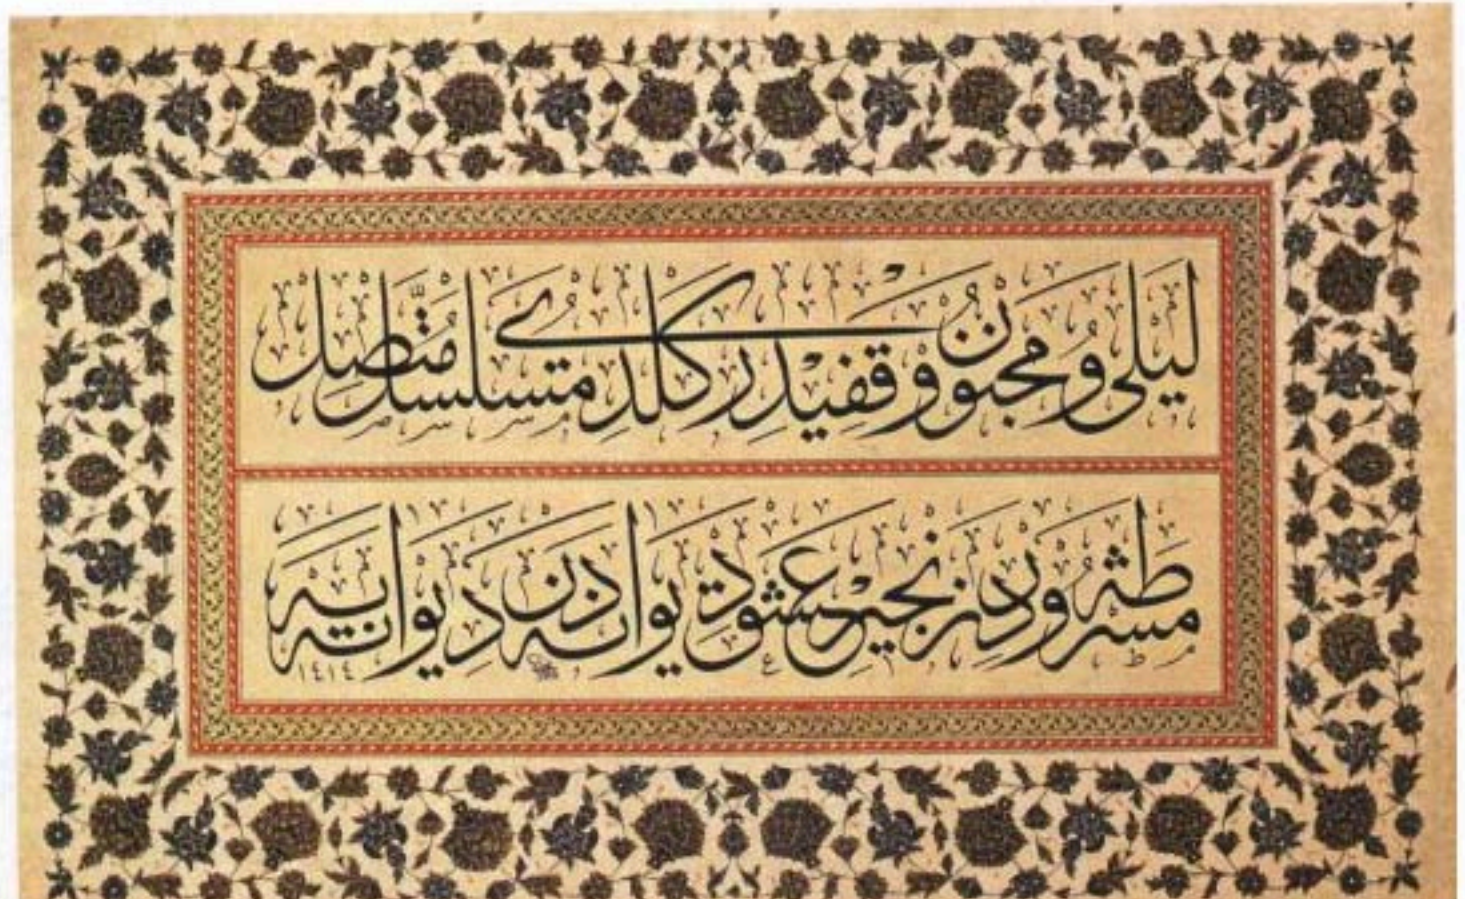 ليلى و مجنون وقفيدر كلدى متسلسل متصل
مشروطه در زنجير عشق ديوانه دن ديوانه يه
١٤١٤